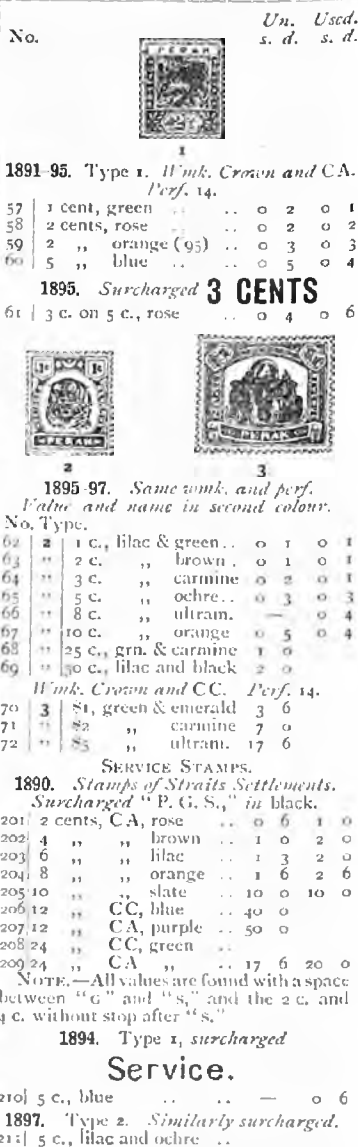 Un. Used.
No. s. d. s. d.
PERAK
1
1891-95. Type 1. Wmk. Crown and CA.
Perf. 14.
57 | 1 cent, green .. .. 0 2 0 1
58 | 2 cents, rose .. 0 2 0 2
59 | 2 ,, orange ('95) .. 0 3 0 3
60 | 5 ,, blue .. .. 0 5 0 4
1895. Surcharged 3 CENTS
61 | 3 c. on 5 c., rose .. 0 4 0 6
PERAK PERAK
2 3
1895-97. Same wmk. and perf.
Value and name in second colour.
No. Type.
62 | 2 | 1 c., lilac & green .. 0 1 0 1
63 | ,, | 2 c. ,, brown . 0 1 0 1
64 | ,, | 3 c. ,, carmine 0 2 0 1
65 | ,, | 5 c. ,, ochre .. 0 3 0 3
66 | ,, | 8 c. ,, ultram. — 0 4
67 | ,, | 10 c. ,, orange 0 5 0 4
68 | ,, | 25 c., grn. & carmine 1 0
69 | ,, | 50 c., lilac and black 2 0
Wmk. Crown and CC. Perf. 14.
70 | 3 | $1, green & emerald 3 6
71 | ,, | $2 ,, carmine 7 0
72 | ,, | $3 ,, ultram. 17 6
SERVICE STAMPS.
1890. Stamps of Straits Settlements.
Surcharged "P. G. S.," in black.
201 | 2 cents, CA, rose .. 0 6 1 0
202 | 4 ,, ,, brown .. 1 0 2 0
203 | 6 ,, ,, lilac .. 1 3 2 0
204 | 8 ,, ,, orange .. 1 6 2 6
205 | 10 ,, ,, slate .. 10 0 10 0
206 | 12 ,, CC, blue .. 40 0
207 | 12 ,, CA, purple .. 50 0
208 | 24 ,, CC, green ..
209 | 24 ,, CA ,, .. 17 6 20 0
NOTE.—All values are found with a space
between "G" and "S," and the 2 c. and
4 c. without stop after "S."
1894. Type 1, surcharged
Service.
210 | 5 c., blue .. .. — 0 6
1897. Type 2. Similarly surcharged.
211 | 5 c., lilac and ochre ..